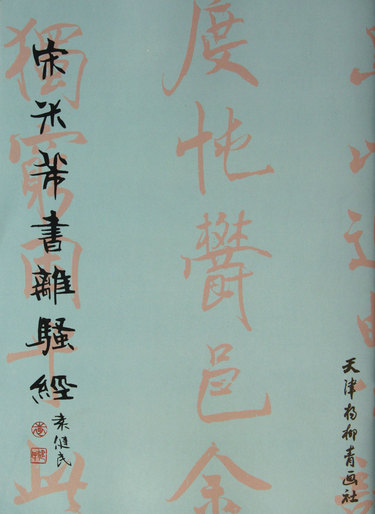 宋米芾書離騷經
袁健民
天津杨柳青画社
度忳鬱邑余
獨窮困乎此